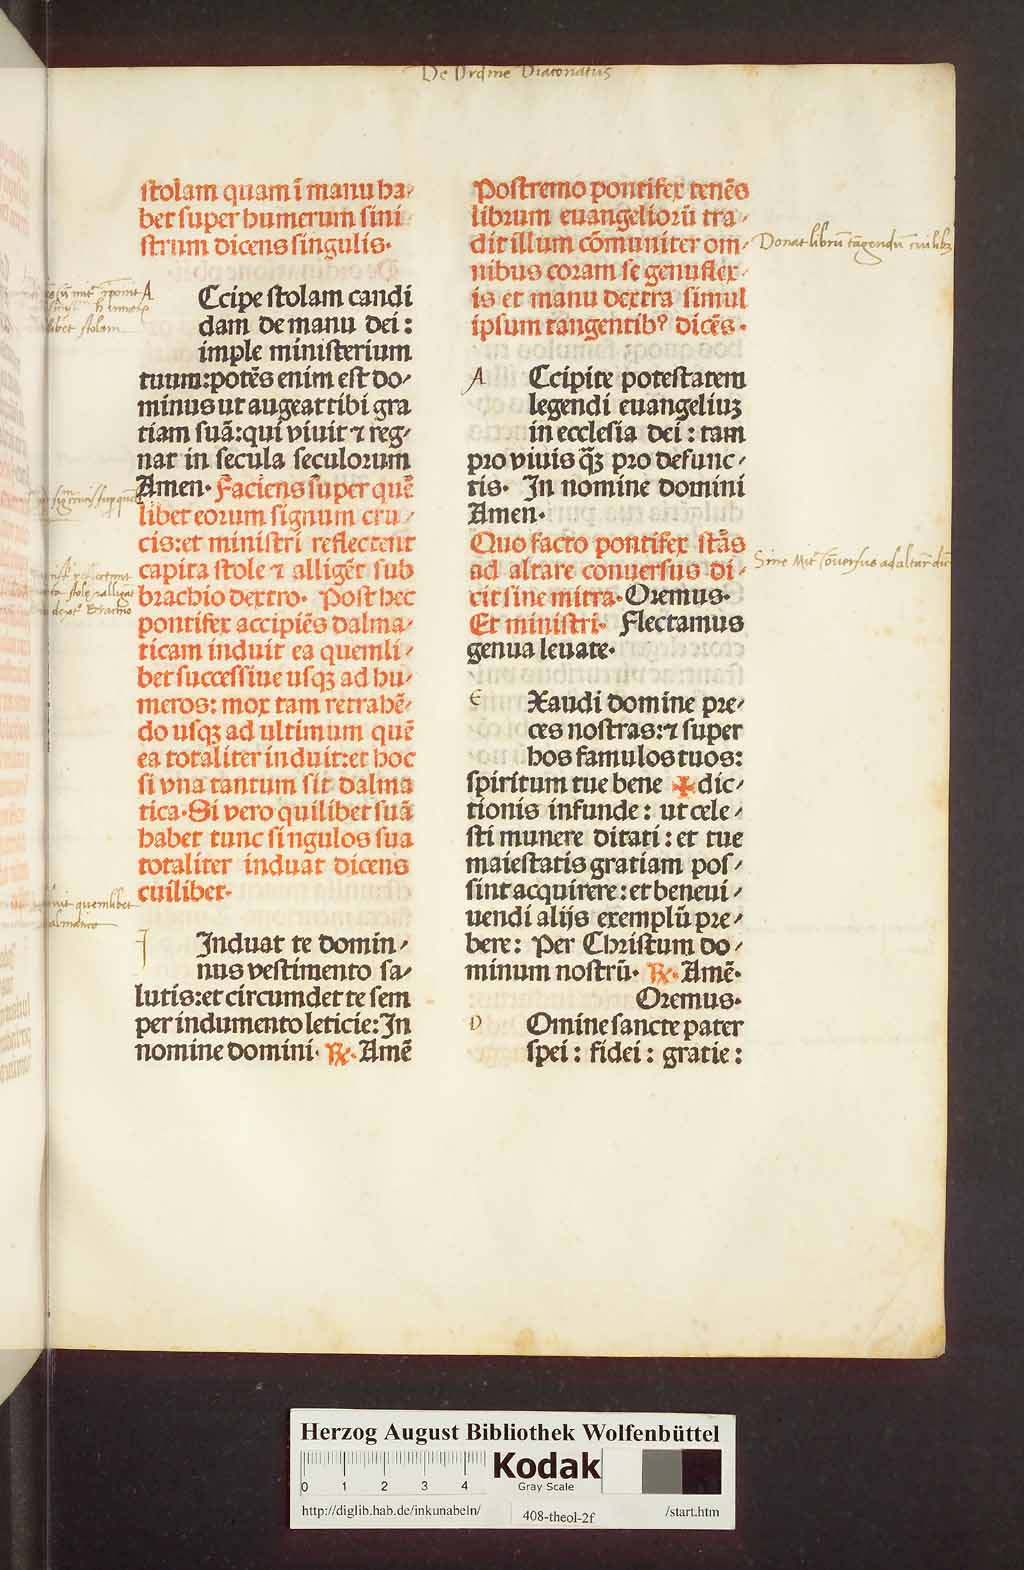 De Ordine Diaconatus
stolam quam ī manu ha⸗
bet super humerum sini
strum dicens singulis·
A Ccipe stolam candi
dam de manu dei :
imple ministerium
tuum: potēs enim est do⸗
minus ut augeat tibi gra
tiam suā: qui viuit ⁊ reg⸗
nat in secula seculorum
Amen· Faciens super quē
libet eorum signum cru⸗
cis: et ministri reflectent
capita stole ⁊ alligēt sub
brachio dextro· Post hec
pontifex accipiēs dalma⸗
ticam induit ea quemli⸗
bet successiue usqꝫ ad hu⸗
meros: mox tam retrahē⸗
do usqꝫ ad ultimum quē
ea totaliter induit: et hoc
si vna tantum sit dalma
tica· Si vero quilibet suā
habet tunc singulos sua
totaliter induat dicens
cuilibet·
I Induat te domin⸗
nus vestimento sa⸗
lutis: et circumdet te sem
per indumento leticie: In
nomine domini· ℞· Amē
libet stolam
brachio
quemlibet
Postremo pontifex tenēs
librum euangeliorū tra⸗
dit illum cōmuniter om⸗
nibus coram se genuflex⸗
is et manu dextra simul
ipsum tangentibꝰ dicēs·
Donat librū tāgendū cuilibꝫ
A Ccipite potestatem
legendi euangeliuꝫ
in ecclesia dei : tam
pro viuis q̄ꝫ pro defunc⸗
tis· In nomine domini
Amen·
Quo facto pontifex stās
ad altare conuersus di⸗
cit sine mitra· Oremus·
Et ministri· Flectamus
genua leuate·
Sine Mit' cōuersus ad altar' dic
E Xaudi domine pre⸗
ces nostras: ⁊ super
hos famulos tuos:
spiritum tue bene ✠ dic⸗
tionis infunde : ut cele⸗
sti munere ditati : et tue
maiestatis gratiam pos⸗
sint acquirere : et beneui⸗
uendi alijs exemplū pre⸗
bere : Per Christum do⸗
minum nostrū· ℞· Amē·
Oremus·
D Omine sancte pater
spei : fidei : gratie :
Herzog August Bibliothek Wolfenbüttel
0 1 2 3 4
Kodak
Gray Scale
http://diglib.hab.de/inkunabeln/ 408-theol-2f /start.htm